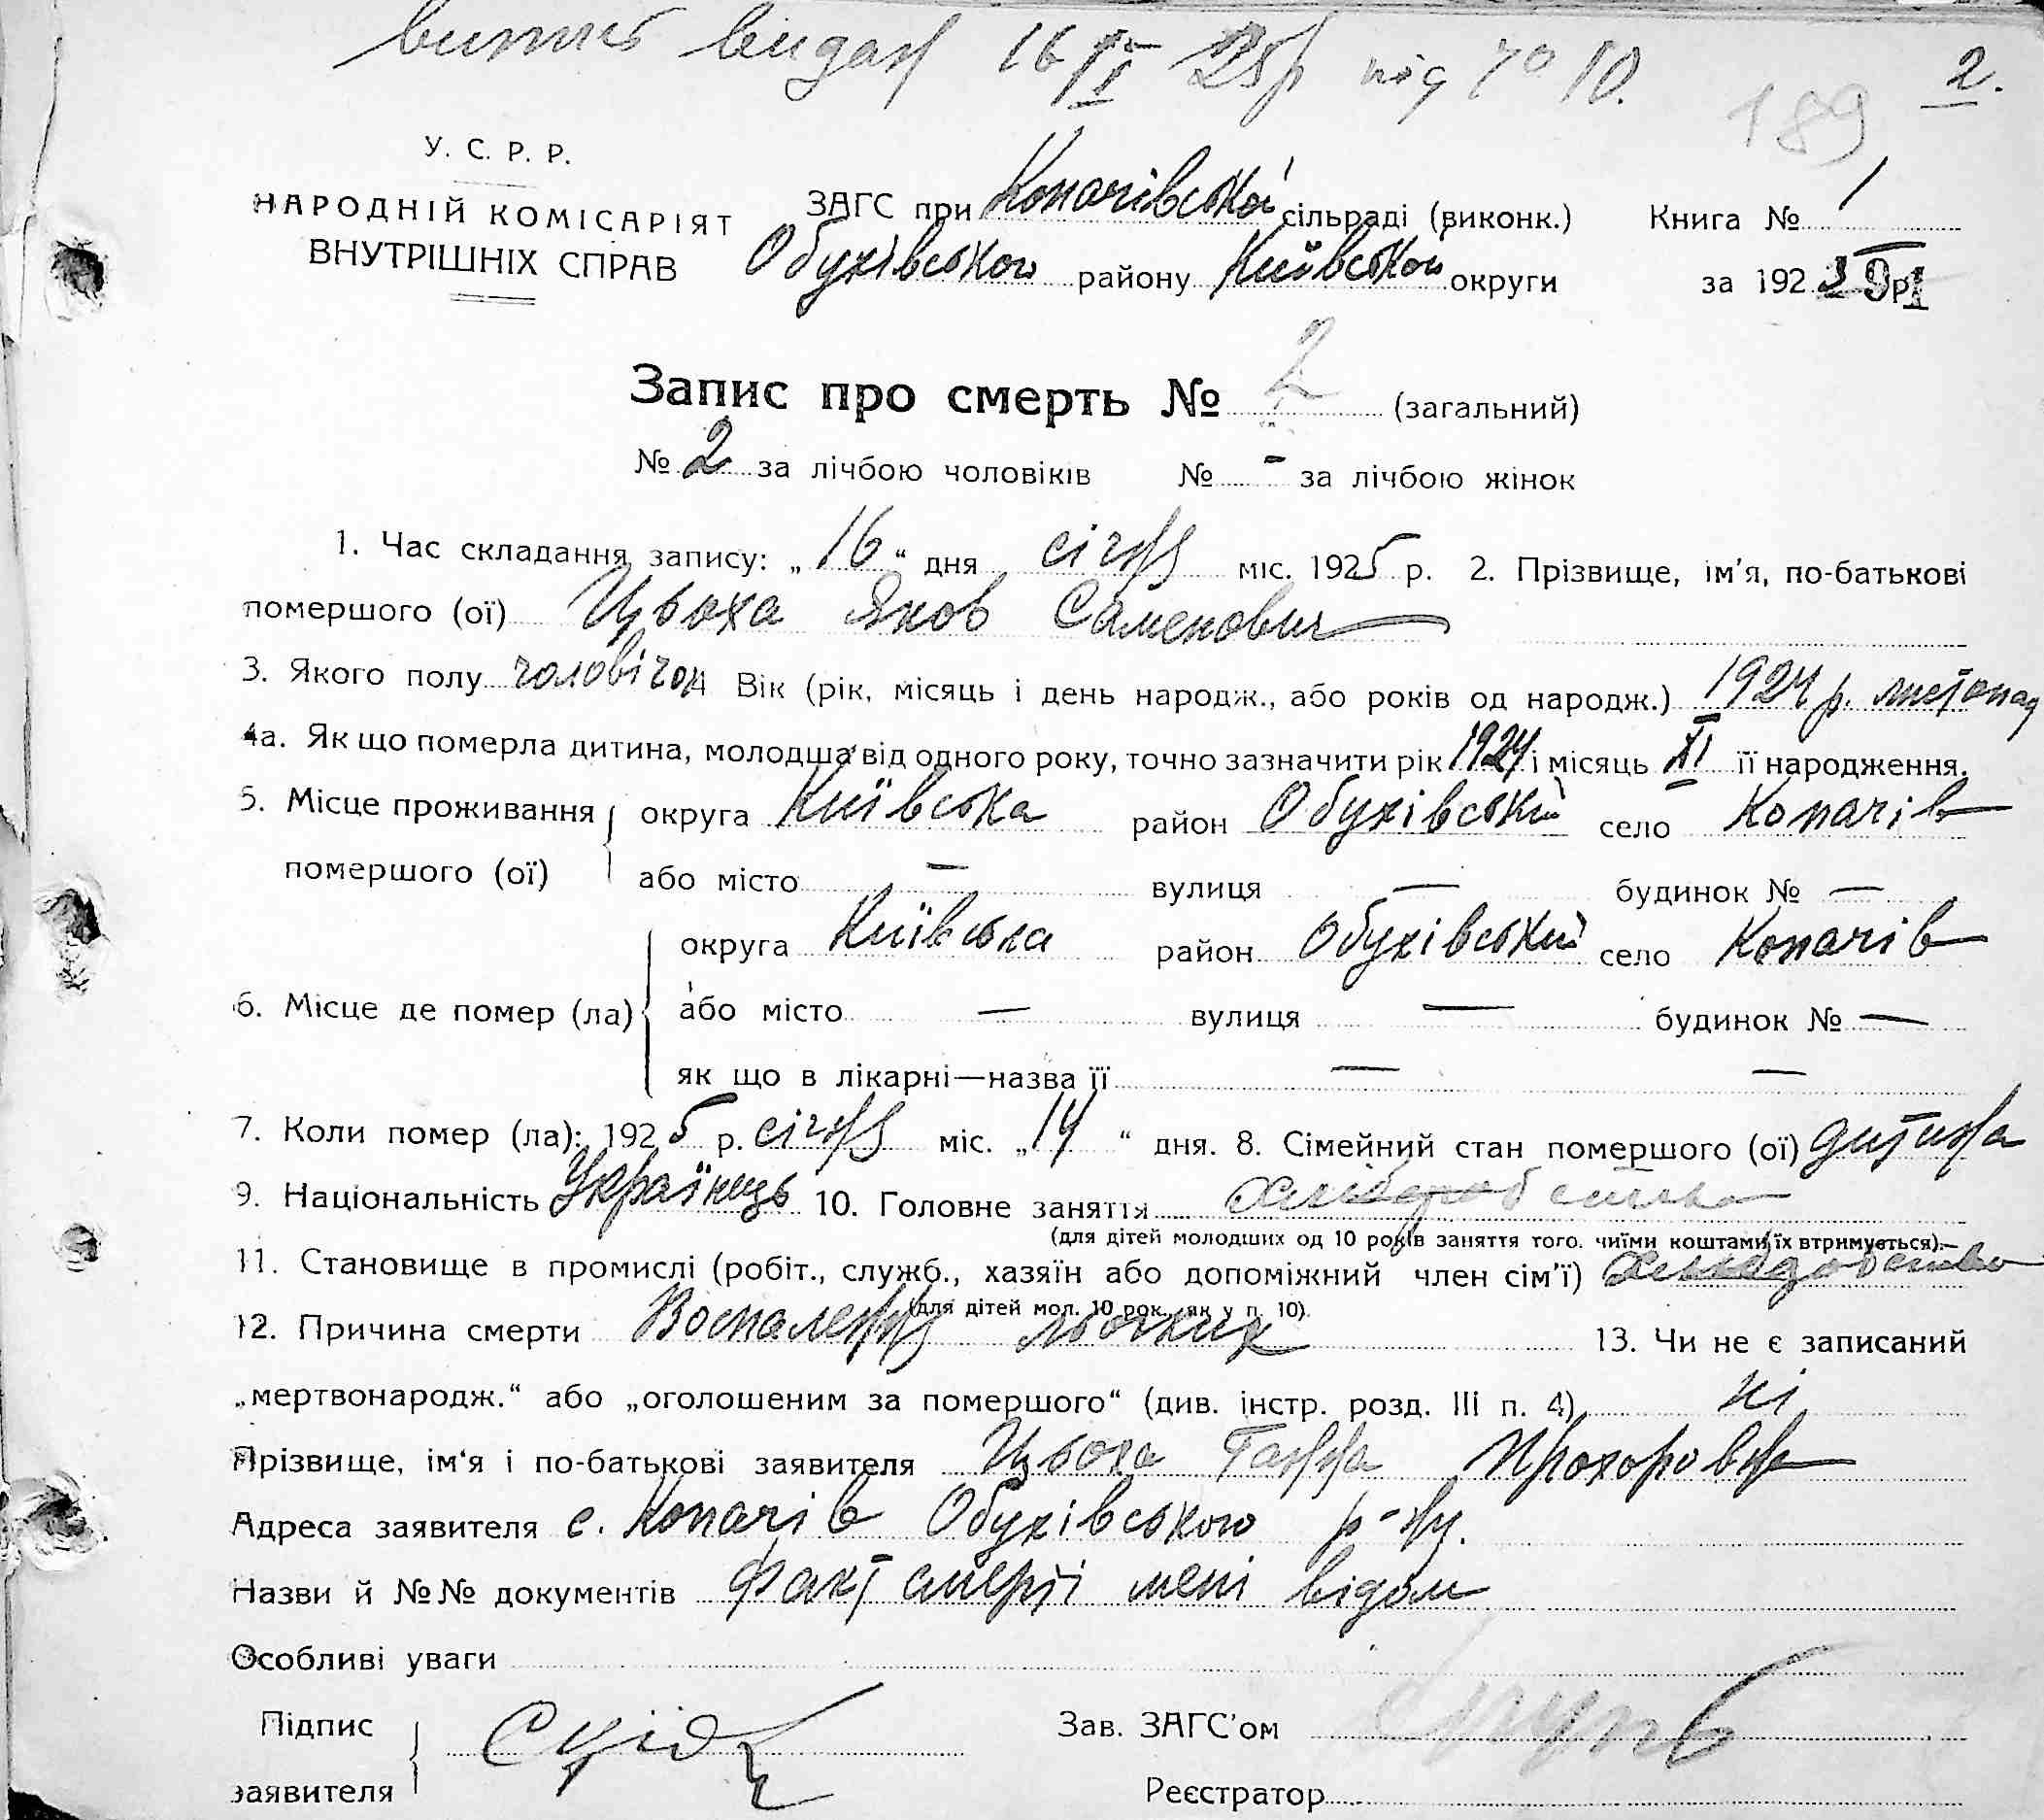 витяг видан 16/II 25р під № 10. 2.
189
У. С. Р. Р.
НАРОДНІЙ КОМІСАРІЯТ
ВНУТРІШНІХ СПРАВ
ЗАГС при Копачівській сільраді (виконк.) Книга № 1
Обухівського району Київської округи за 192 р
Запис про смерть № 2 (загальний)
№ 2 за лічбою чоловіків № - за лічбою жінок
1. Час складання запису: „16“ дня січня міс. 1925 р. 2. Прізвище, ім'я, по-батькові
помершого (ої) Цьоха Яков Саменович
3. Якого полу чоловічої Вік (рік, місяць і день народж., або років од народж.) 1924 р. листопад
4а. Як що померла дитина, молодша від одного року, точно зазначити рік 1924 і місяць XI її народження.
5. Місце проживання округа Київська район Обухівський село Копачів
помершого (ої) або місто — вулиця — будинок № —
округа Київська район Обухівський село Копачів
6. Місце де помер (ла) або місто — вулиця — будинок № —
як що в лікарні—назва її — —
7. Коли помер (ла): 1925 р. січня міс. „14“ дня. 8. Сімейний стан помершого (ої) дитина
9. Національність Українець 10. Головне заняття Хліборобство
(для дітей молодших од 10 років заняття того, чиїми коштами їх втримується).—
11. Становище в промислі (робіт., служб., хазяїн або допоміжний член сім'ї)
(для дітей мол. 10 рок., як у п. 10).
12. Причина смерти Воспалення льочких 13. Чи не є записаний
„мертвонародж.“ або „оголошеним за помершого“ (див. інстр. розд. III п. 4) ні
Прізвище, ім'я і по-батькові заявителя Цьоха Ганна Прохоровна
Адреса заявителя с. Копачів Обухівського р-ну.
Назви й №№ документів Факт смерті мені відом
Особливі уваги
Підпис
заявителя
Зав. ЗАГС'ом
Реєстратор